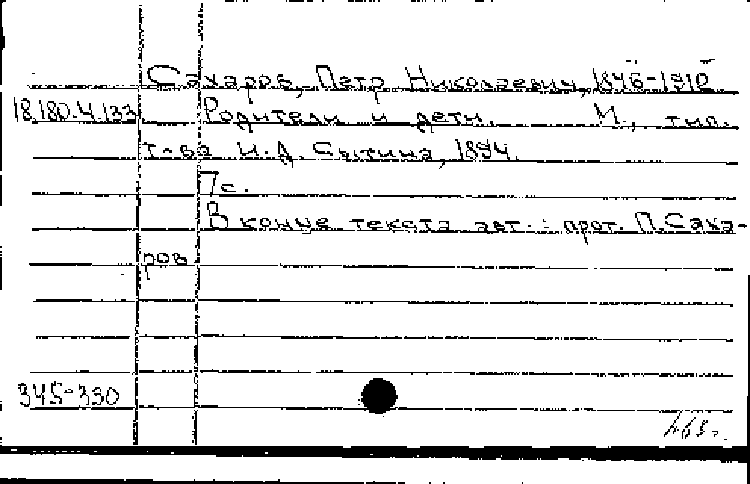 Сахаров, Петр Николаевич, 1846-1910
18.180.4.133 Родители и дети. М., тип.
т-ва И.Д. Сытина, 1894.
7с.
В конце текста авт.: прот. П.Саха-
ров
345-330